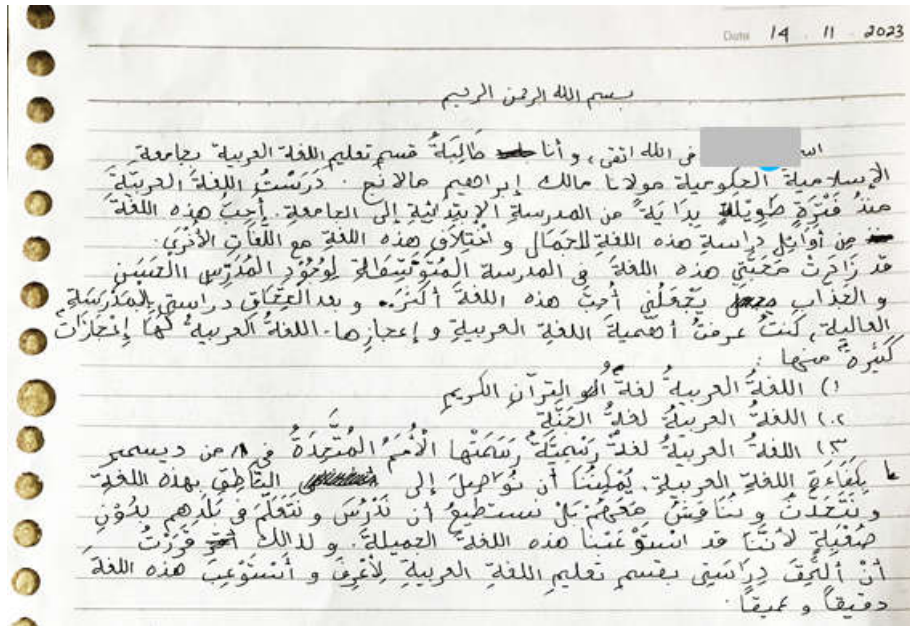 Date 14 . 11 . 2023
بسم الله الرحمن الرحيم
في الله اتقى، و أنا طَالِبَةٌ قسم تعليم اللغة العربية بجامعة
الإسلامية الحكومية مولانا مالك إبراهيم مالانج. دَرَسْتُ اللغةَ العربيّةَ
منذُ فَتْرَةٍ طَوِيْلَةٍ بِدَايَةً من المدرسةِ الإبتدائيةِ إلى الجامعةِ. أُحِبُّ هذه اللغةَ
من أوائِل دراسةِ هذه اللغةِ للجَمَال و اخْتِلَافِ هذه اللغةِ مع اللُّغَاتِ الأُخْرَى.
قد زَادَتْ مَحَبَّتِي هذه اللغةَ في المدرسة المُتَوَسِّطَةِ لِوُجُوْدِ المُدَرِّسِ الحَسَنِ
و الجَذَّابِ يَجْعَلُنِي أُحِبُّ هذه اللغةَ أكثرَ. و بعد الْتِحَاقِ دراستي بالمَدْرَسَةِ
العالية، كنتُ عرفتُ أهميةَ اللغةِ العربيةِ و إعجازها. اللغةُ العربيةُ لَهَا إِعْجَازَاتٌ
كَثِيْرَةٌ منها:
١) اللغةُ العربيةُ لغةُ القرآن الكريمِ
٢) اللغةُ العربيةُ لغةُ الجَنَّةِ
٣) اللغةُ العربيةُ لغةٌ رَسْمِيَّةٌ رَسَمَتْها الْأُمَمُ المُتَّحِدَةُ في ١٨ من ديسمبر
بِكَفَاءَةِ اللغةِ العربيةِ. يُمْكِنُنَا أن نُوَاصِلَ إلى النَّاطِقِ بهذه اللغةِ
و نَتَحَدَّثُ و نُنَاقِشُ مَعَهُمْ بَلْ نستطيعُ أن نَدْرُسَ و نَتَعَلَّمَ في بَلَدِهم بِدُوْنِ
صُعْبَةٍ لأنَّنَا قد اسْتَوْعَبْنَا هذه اللغةَ الجميلةَ. و لذالك قَرَرْتُ
أنْ أُلْحِقَ دِرَاسَتِي بقسمِ تعليمِ اللغةِ العربيةِ لِأَعْرِفَ و أَسْتَوْعِبَ هذه اللغةَ
دقيقًا و عميقًا.